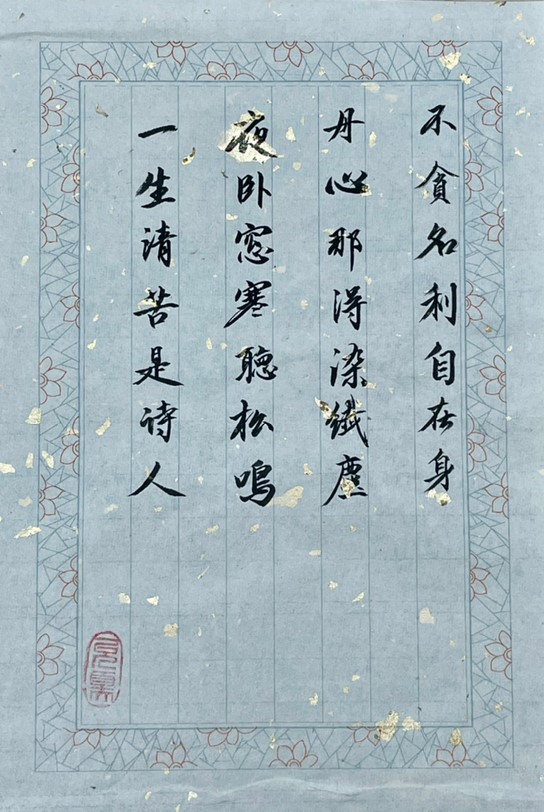 不貪名利自在身
丹心那得染纖塵
夜卧窓寒聽松鳴
一生清苦是诗人